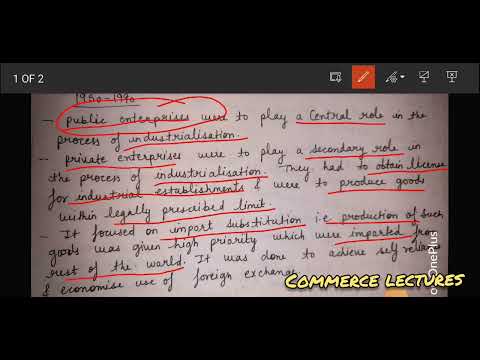 1 OF 2
1950-1990
- Public enterprises were to play a Central role in the
process of industrialisation.
- private enterprises were to play a secondary role in
the process of industrialisation. They had to obtain license
for industrial establishments & were to produce goods
within legally prescribed limit.
- It focused on import substitution i.e production of such
goods was given high priority which were imported from
rest of the world. It was done to achieve self
& economise use of foreign exchange
COMMERCE LECTURES
OnePlus